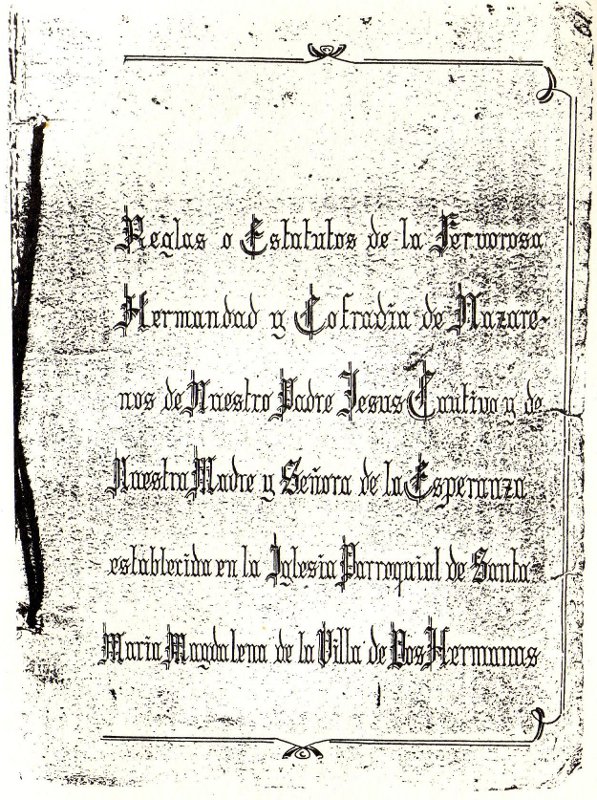 Reglas o Estatutos de la Fervorosa
Hermandad y Cofradia de Nazare-
nos de Nuestro Padre Jesus Cautivo y de
Nuestra Madre y Señora de la Esperanza
establecida en la Iglesia Parroquial de Santa
Maria Magdalena de la Villa de Dos Hermanas